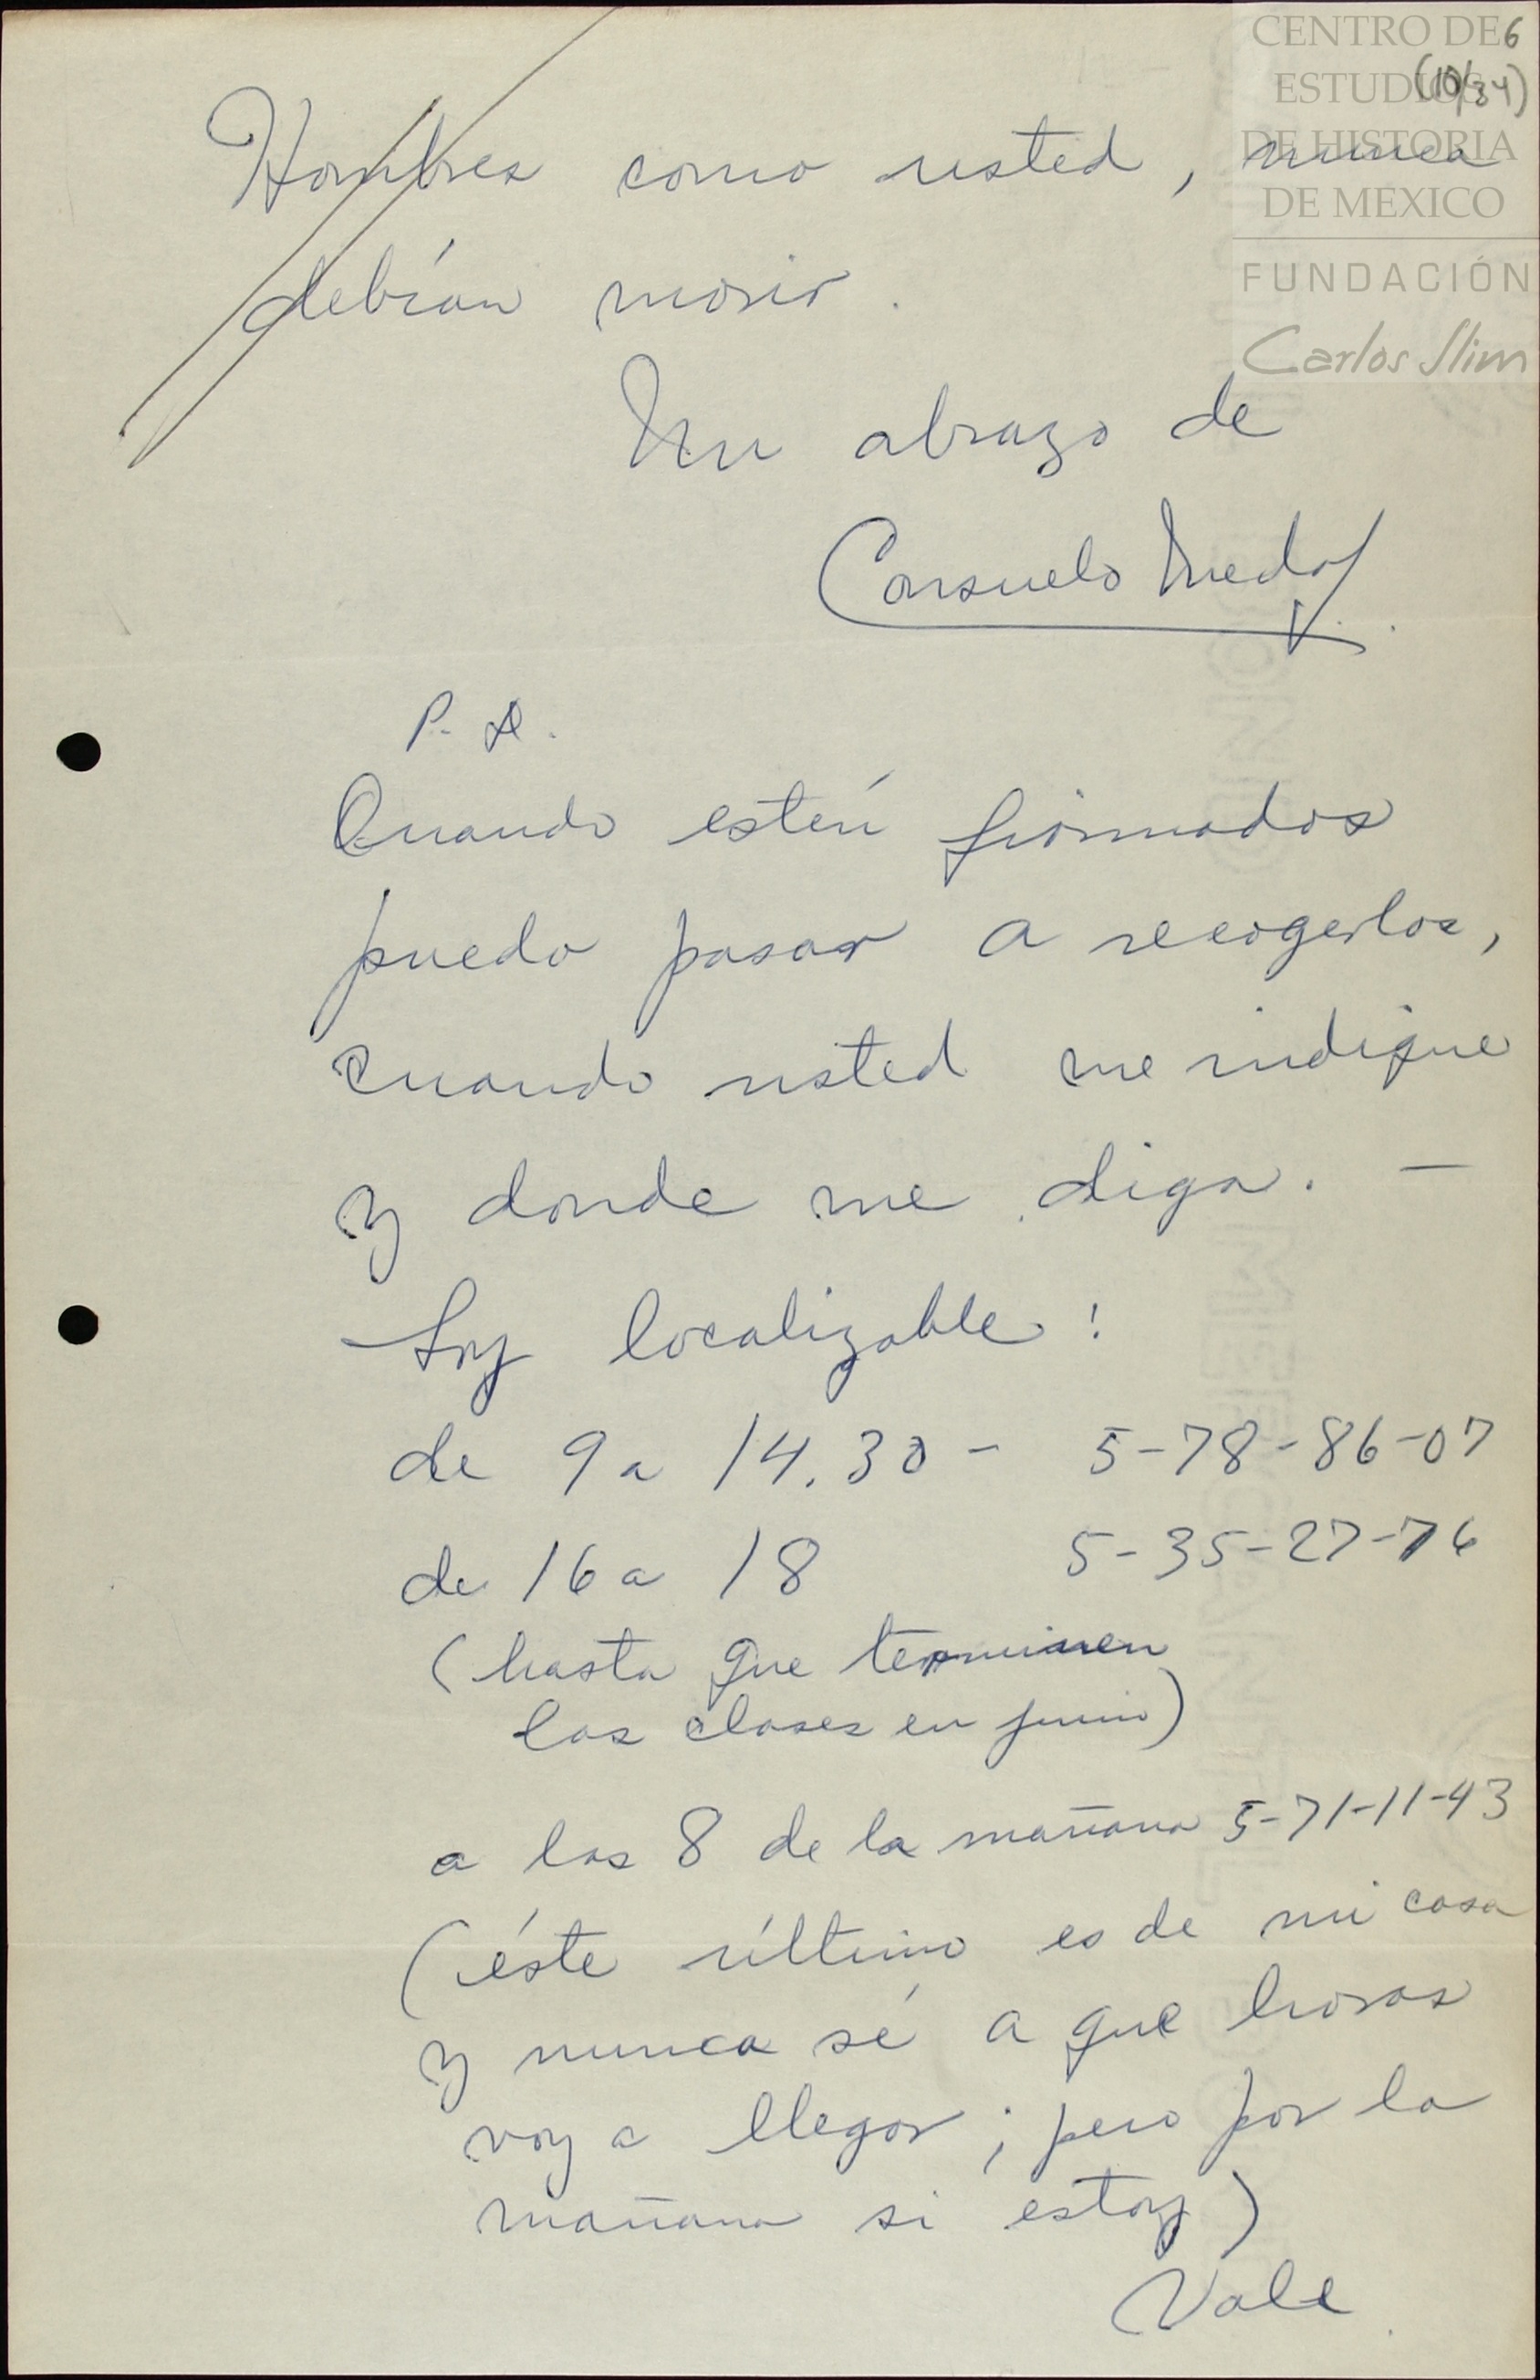 CENTRO DE
ESTUDIOS
DE HISTORIA
DE MÉXICO
FUNDACIÓN
Carlos Slim
6
(10/34)
Hombres como usted, nunca
debían morir.
Un abrazo de
Consuelo
P.D.
Cuando estén firmados
puedo pasar a recogerlos,
cuando usted me indique
y donde me diga. —
Soy localizable:
de 9 a 14.30 - 5-78-86-07
de 16 a 18 5-35-27-76
(hasta que terminen
las clases en junio)
a las 8 de la mañana 5-71-11-43
(éste último es de mi casa
y nunca sé a que horas
voy a llegar; pero por la
mañana si estoy)
Vale